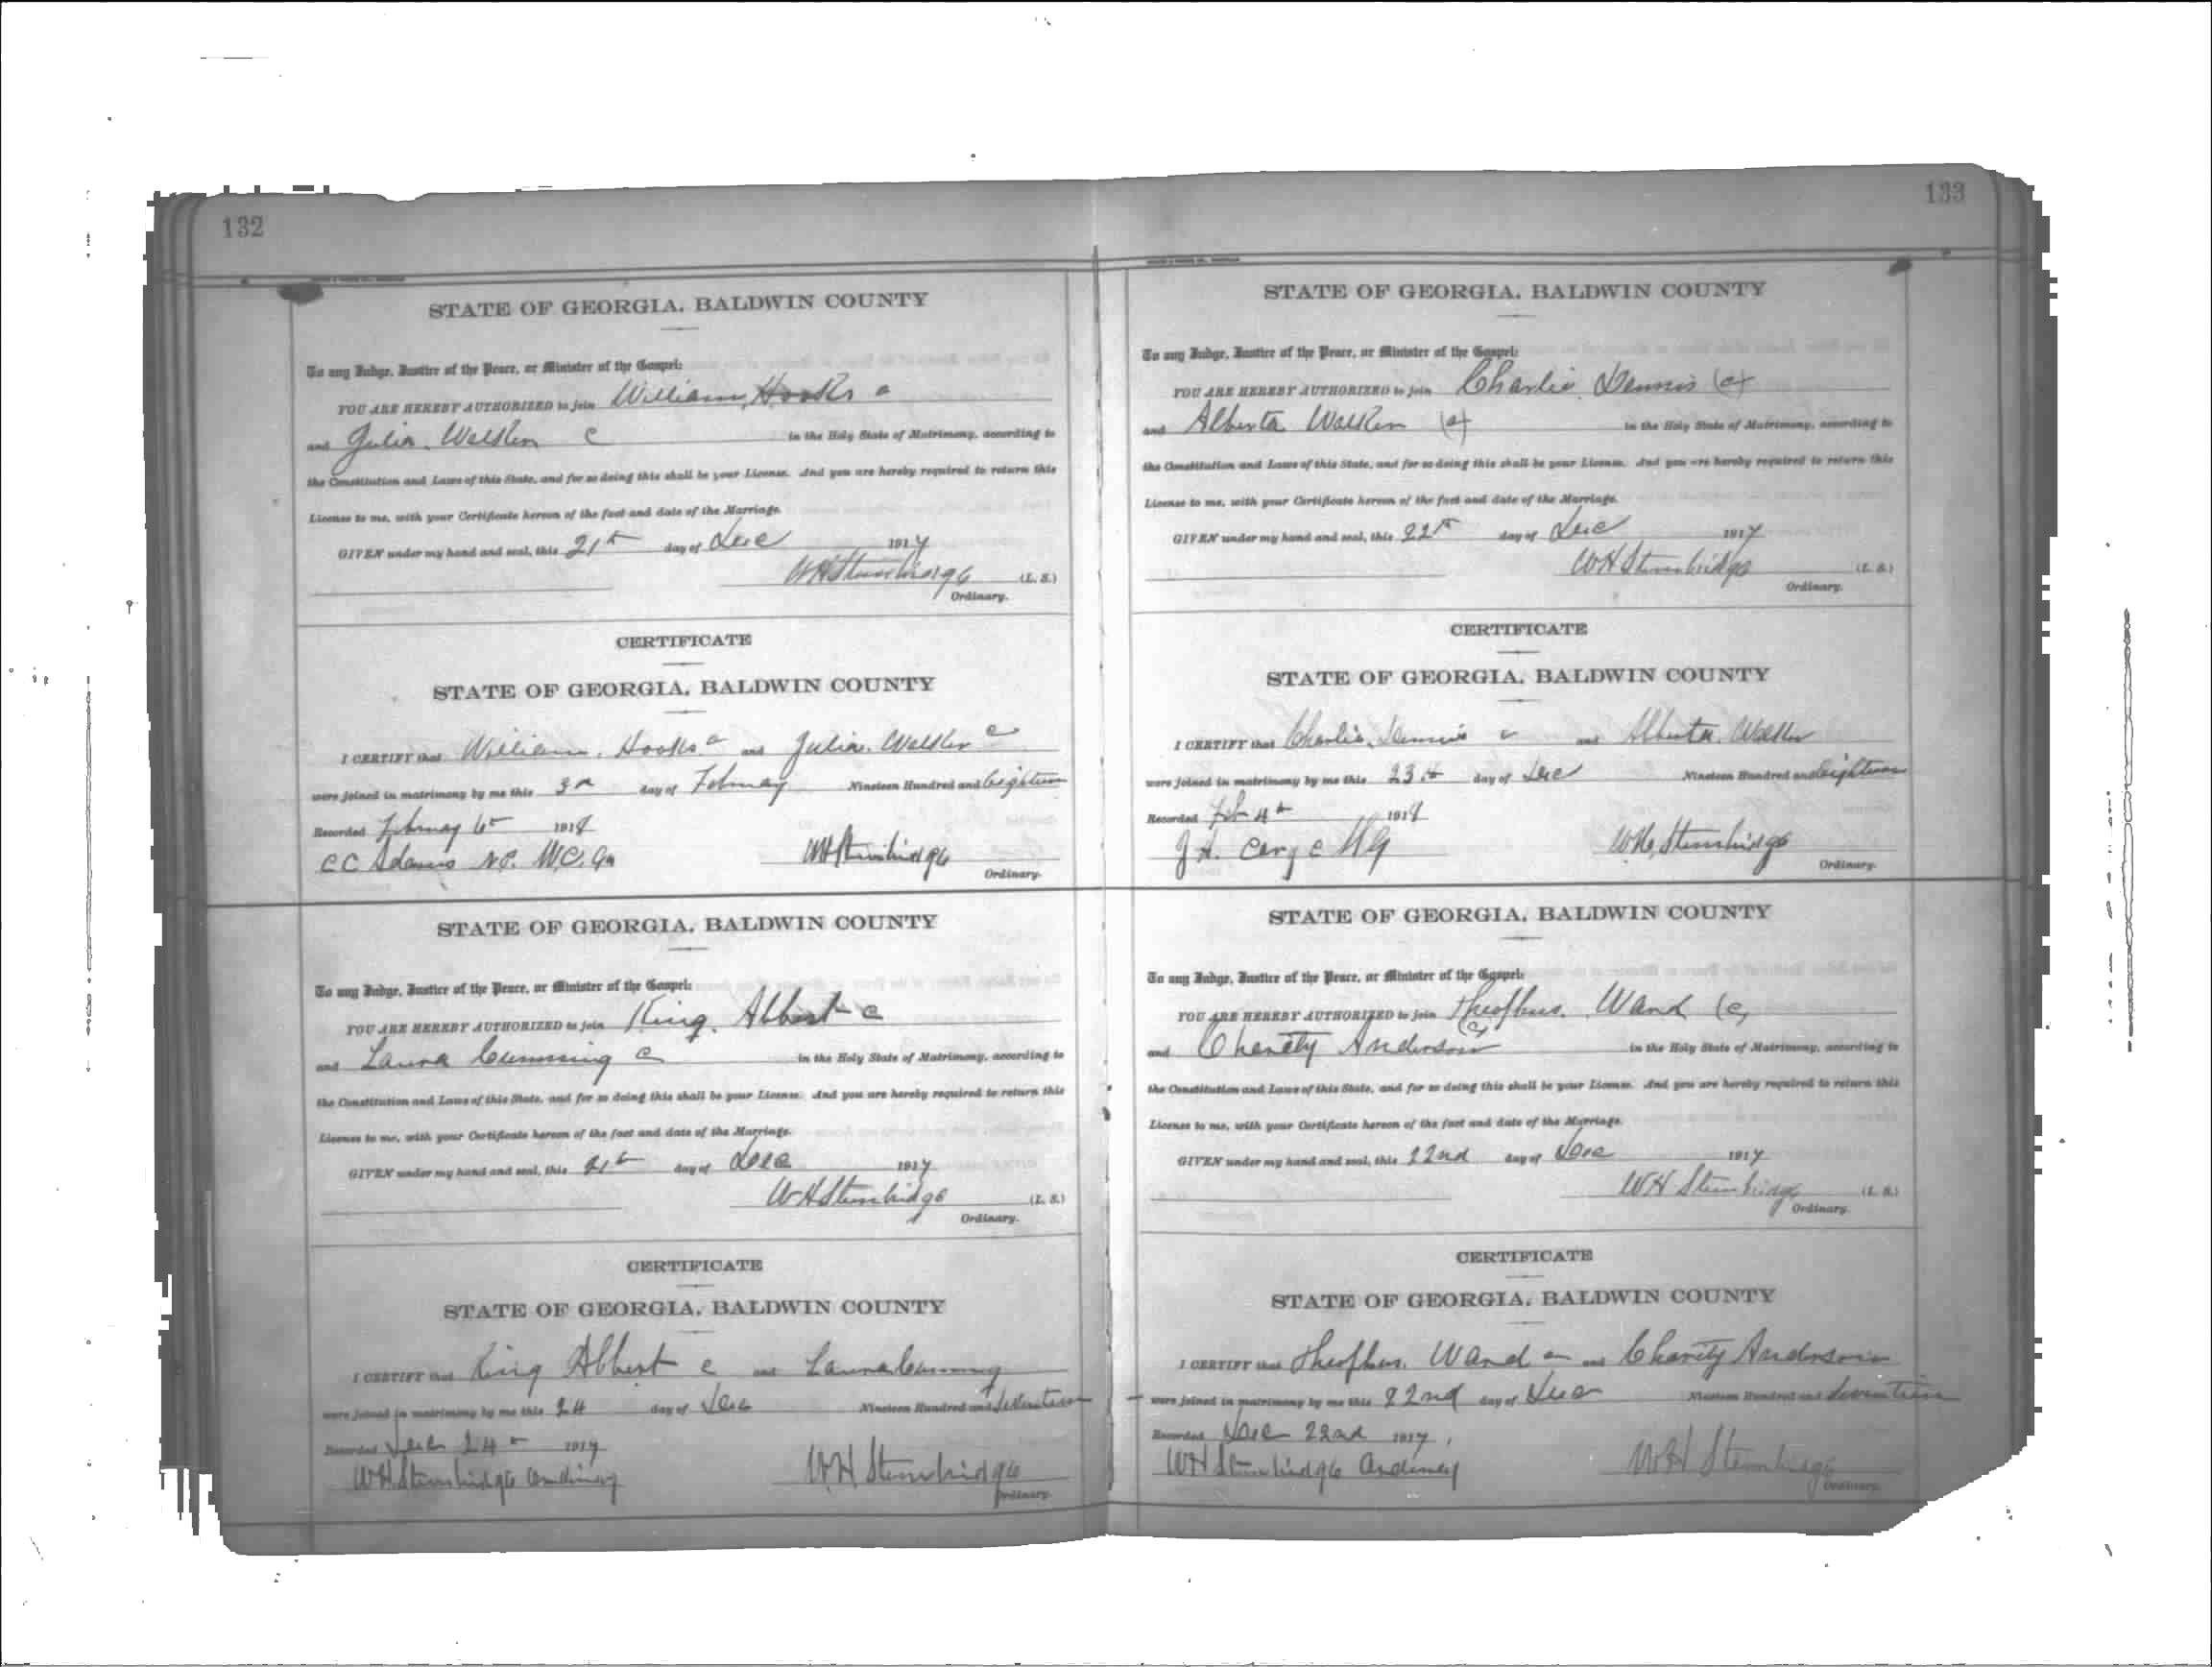 132
STATE OF GEORGIA, BALDWIN COUNTY
To any Judge, Justice of the Peace, or Minister of the Gospel:
YOU ARE HEREBY AUTHORIZED to join William Hooks c
and Julia Walker c in the Holy State of Matrimony, according to
the Constitution and Laws of this State, and for so doing this shall be your License. And you are hereby required to return this
License to me, with your Certificate hereon of the fact and date of the Marriage.
GIVEN under my hand and seal, this 21st day of Dec 1917
WH Stembridge (L. S.)
Ordinary.
CERTIFICATE
STATE OF GEORGIA, BALDWIN COUNTY
I CERTIFY that William Hooks c and Julia Walker c
were joined in matrimony by me this 3rd day of February Nineteen Hundred and Eighteen
Recorded February 6th 1918
CC Adams N.P. W.C. Ga WH Stembridge
Ordinary.
STATE OF GEORGIA, BALDWIN COUNTY
To any Judge, Justice of the Peace, or Minister of the Gospel:
YOU ARE HEREBY AUTHORIZED to join King Abbert c
and Laura Cumming c in the Holy State of Matrimony, according to
the Constitution and Laws of this State, and for so doing this shall be your License. And you are hereby required to return this
License to me, with your Certificate hereon of the fact and date of the Marriage.
GIVEN under my hand and seal, this 21st day of Dec 1917
WH Stembridge (L. S.)
Ordinary.
CERTIFICATE
STATE OF GEORGIA, BALDWIN COUNTY
I CERTIFY that King Abbert c and Laura Cumming
were joined in matrimony by me this 24 day of Dec Nineteen Hundred and Seventeen
Recorded Dec 24th 1917
WH Stembridge Ordinary WH Stembridge
Ordinary.
133
STATE OF GEORGIA, BALDWIN COUNTY
To any Judge, Justice of the Peace, or Minister of the Gospel:
YOU ARE HEREBY AUTHORIZED to join Charlie Dennis (c)
and Alberta Walker (c) in the Holy State of Matrimony, according to
the Constitution and Laws of this State, and for so doing this shall be your License. And you are hereby required to return this
License to me, with your Certificate hereon of the fact and date of the Marriage.
GIVEN under my hand and seal, this 22th day of Dec 1917
WH Stembridge (L. S.)
Ordinary.
CERTIFICATE
STATE OF GEORGIA, BALDWIN COUNTY
I CERTIFY that Charlie Dennis c and Alberta Walker
were joined in matrimony by me this 23th day of Dec Nineteen Hundred and Eighteen
Recorded Feb 4th 1918
WH Stembridge
Ordinary.
STATE OF GEORGIA, BALDWIN COUNTY
To any Judge, Justice of the Peace, or Minister of the Gospel:
YOU ARE HEREBY AUTHORIZED to join Theophus Ward (c)
and Charity Anderson (c) in the Holy State of Matrimony, according to
the Constitution and Laws of this State, and for so doing this shall be your License. And you are hereby required to return this
License to me, with your Certificate hereon of the fact and date of the Marriage.
GIVEN under my hand and seal, this 22nd day of Dec 1917
WH Stembridge (L. S.)
Ordinary.
CERTIFICATE
STATE OF GEORGIA, BALDWIN COUNTY
I CERTIFY that Theophus Ward c and Charity Anderson
were joined in matrimony by me this 22nd day of Dec Nineteen Hundred and Seventeen
Recorded Dec 22nd 1917
WH Stembridge Ordinary WH Stembridge
Ordinary.